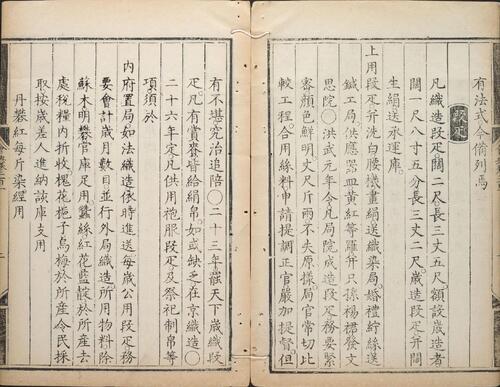 有法式今備列焉
段疋
凡織造段疋闊二尺長三丈五尺額設歲造者
闊一尺八寸五分長三丈二尺歲造段疋幷闊
生絹送承運庫
上用段疋幷洗白腰襪畫絹送織染局婚禮紵絲送
鍼工局供應器皿黃紅等羅幷只孫裼裙發文
思院〇洪武元年令凡局院成造段疋務要緊
密顏色鮮明丈尺斤兩不失原樣局官常切比
較工程合用絲料申請提調正官嚴加提督但
有不堪究治追陪〇二十三年罷天下歲織段
疋凡有賞賚皆給絹帛如或缺乏在京織造〇
二十六年定凡供用袍服段疋及祭祀制帛等
項須於
內府置局如法織造依時進送每歲公用段疋務
要會計歲月數目並行外局織造所用物料除
蘇木明礬官庫足用蠶絲紅花藍靛於所產去
處稅糧內折收槐花梔子烏梅於所產令民採
取按歲差人進納該庫支用
丹礬紅每斤染經用